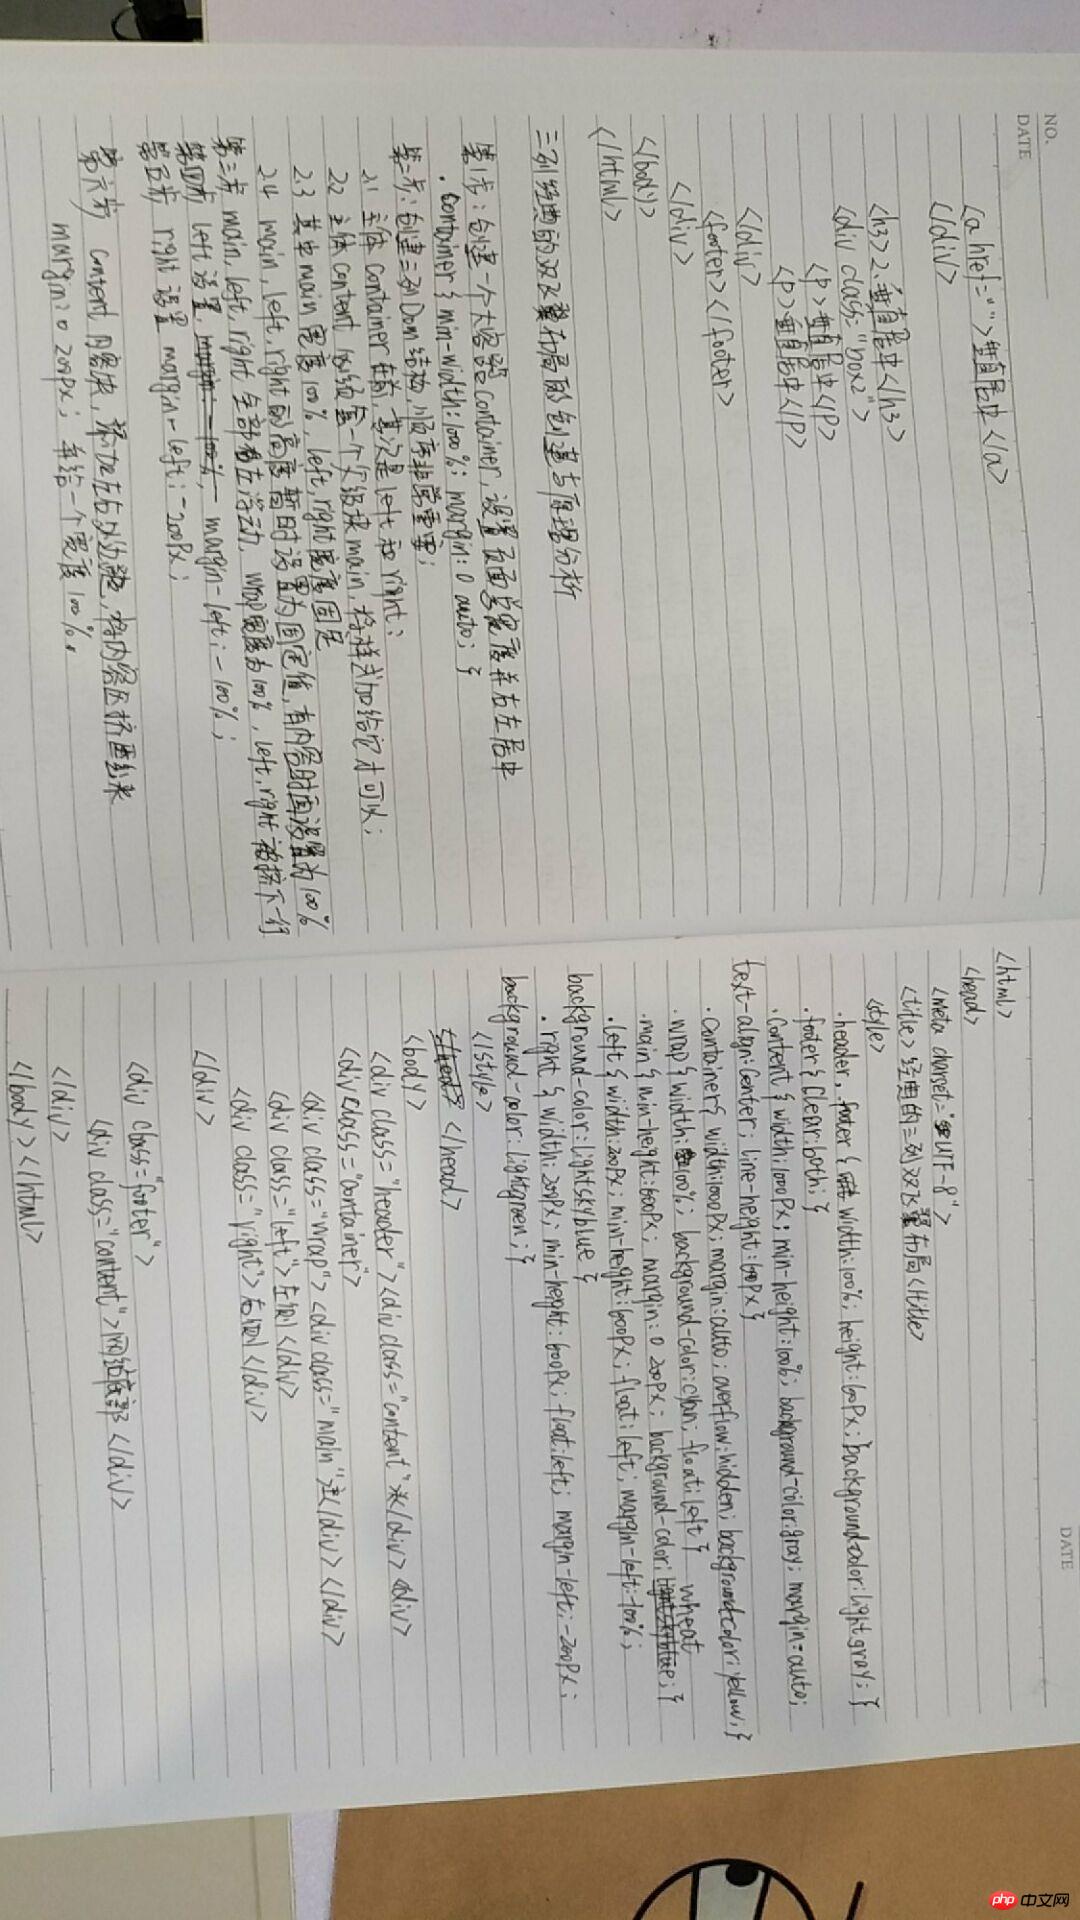 NO.
DATE
<a href="">垂直居中</a>
</div>
<h3>2.垂直居中</h3>
<div class="box2">
<p>垂直居中<P>
<p>垂直居中</P>
</div>
<footer></footer>
</div>
</body>
</html>
三列经典的双飞翼布局的创建与原理分析
第1步:创建一个大容器container,设置页面总宽度并右左居中
.container{min-width:1000%; margin:0 auto;}
第二步:创建三列Dom结构,顺序非常重要;
2.1 主体container在前,其次是left和right;
2.2 主体content必须套一个父级块main,将样式加给它才可以;
2.3 其中main宽度100%,left,right宽度固定
2.4 main,left,right的高度暂时设置为固定值,有内容时再设置为100%
第三步 main,left,right全部向左浮动,wrap宽度为100%,left,right被挤下一行
第四步 left设置, margin-left:-100%;
第五步 right设置 margin-left:-200Px;
第六步 content内容块,添加左右外边距,将内容区挤出来
margin:0 200px; 并给一个宽度100%.
DATE
<html>
<head>
<meta charset="UTF-8">
<title>经典的三列双飞翼布局<title>
<style>
.header, .footer{ width:100%; height:60Px; background-color:lightgray;}
.footer{Clear:both;}
.Content{width:1000Px; min-height:100%; background-color:gray; margin=auto;
text-align:Center; line-height:60Px}
.Container{width:1000Px; margin:auto; overflow:hidden; background-color:yellow;}
.wrap{width:100%; background-color:cyan; float:left}
.main{min-height:600Px; margin:0 200Px; background-color:wheat;}
.left{width:200Px; min-height:600Px; float:left; margin-left:-100%;
background-color:lightskyblue}
.right{width:200Px; min-height:600Px; float:left; margin-left:-200Px;
background-color:lightgreen;}
</style>
</head>
<body>
<div class="header"><div class="content">头</div><div>
<div class="container">
<div class="wrap"><div class="main">主</div></div>
<div class="left">左侧</div>
<div class="right">右侧</div>
</div>
<div class="footer">
<div class="content">网站底部</div>
</div>
</body></html>
php 中文网